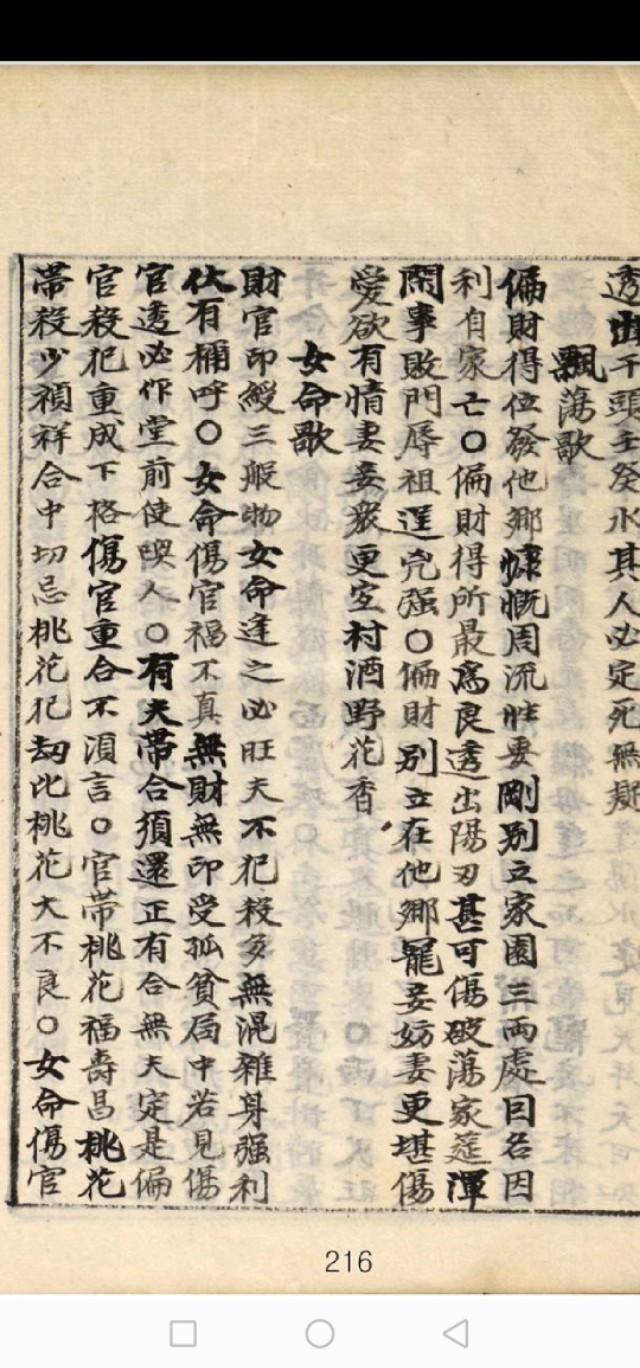 透出干頭壬癸水其人必定死無疑
飄蕩歌
偏財得位發他鄉慷慨周流性要剛別立家園三兩處因名因
利自家亡○偏財得所最為良透出陽刃甚可傷破蕩家筵渾
閙事敗門辱祖逞兇强○偏財別立在他鄉寵妾妨妻更堪傷
愛欲有情妻妾衆更宜村酒野花香
女命歌
財官印綬三般物女命逢之必旺夫不犯殺多無混雜身强利
伏有稱呼○女命傷官福不真無財無印受孤貧局中若見傷
官透必作堂前使喚人○有夫帶合須還正有合無夫定是偏
官殺犯重成下格傷官重合不湏言○官帶桃花福壽昌桃花
帶殺少禎祥合中切忌桃花犯劫比桃花大不良○女命傷官
216